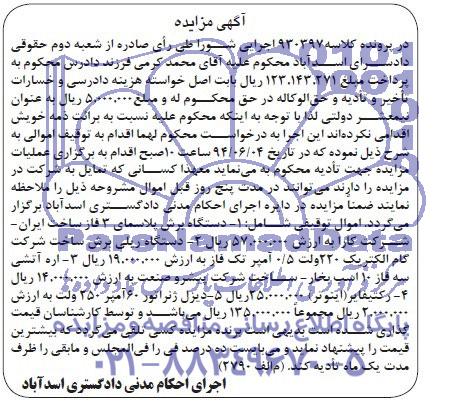 آگهی مزایده
در پرونده کلاسه ۹۳۰۳۹۷ اجرایی شورا طی رأی صادره از شعبه دوم حقوقی
دادسرای اسدآباد محکوم علیه آقای محمد کرمی فرزند دادرس محکوم به
پرداخت مبلغ ۱۲۳.۱۴۳.۲۷۱ ریال بابت اصل خواسته هزینه دادرسی و خسارات
تأخیر و تادیه و حق‌الوکاله در حق محکوم له و مبلغ ۵.۰۰۰.۰۰۰ ریال به عنوان
نیمعشر دولتی لذا با توجه به اینکه محکوم علیه نسبت به برائت ذمه خویش
اقدامی نکرده‌اند این اجرا به درخواست محکوم لهما اقدام به توقیف اموالی به
شرح ذیل نموده که در تاریخ ۹۴/۰۶/۰۴ ساعت ۱۰صبح اقدام به برگزاری عملیات
مزایده جهت تأدیه محکوم به می‌نماید معهذا کسانی که تمایل به شرکت در
مزایده را دارند می‌توانند در مدت پنج روز قبل اموال مشروحه ذیل را ملاحظه
نمایند ضمنا مزایده در دایره اجرای احکام مدنی دادگستری اسدآباد برگزار
می‌گردد. اموال توقیفی شامل: ۱- دستگاه برش پلاسمای ۳ فاز ساخت ایران-
شرکت کارا به ارزش ۵۷.۰۰۰.۰۰۰ ریال ۲- دستگاه ریلی برش ساخت شرکت
گام الکتریک ۲۲۰ولت ۰/۵ آمپر تک فاز به ارزش ۱۹.۰۰۰.۰۰۰ ریال ۳- اره آتشی
سه فاز ۱۰ اسب بخار - ساخت شرکت پیشرو صنعت به ارزش ۱۴.۰۰۰.۰۰۰ ریال
۴- رکتیفایر (اینوتر) ۲۵.۰۰۰.۰۰۰ ریال ۵-دیزل ژنراتور ۶۰آمپر ۲۵۰ ولت به ارزش
۲۰.۰۰۰.۰۰۰ ریال مجموعاً ۱۳۵.۰۰۰.۰۰۰ ریال می‌باشد و توسط کارشناسان قیمت
گذاری شده است بدیهی است برنده مزایده کسی تلقی می‌گردد که بیشترین
قیمت را پیشنهاد نماید و می‌بایست ده درصد فی را فی‌المجلس و مابقی را ظرف
مدت یک ماه تأدیه کند. (م‌الف ۲۷۹۰)
اجرای احکام مدنی دادگستری اسدآباد
پایگاه اطلاع رسانی مناقصه و مزایده
۰۲۱-۸۸۳۴۹۶۷۰-۵